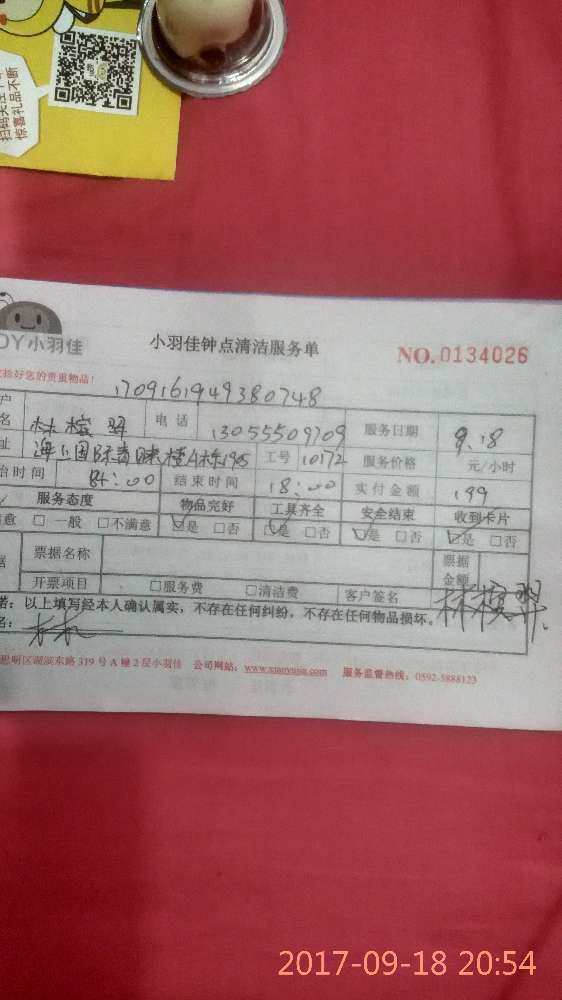 扫码关注
惊喜礼品不断
DY小羽佳
小羽佳钟点清洁服务单
NO.0134026
捡好您的贵重物品!
1709161949380748
户
名 林 电话 13055509709 服务日期 9.18
址 海上国际 楼A栋 1905 工号 10172 服务价格 元/小时
始时间 :00 结束时间 18:00 实付金额 199
服务态度 物品完好 工具齐全 安全结束 收到卡片
意 □一般 □不满意 ☑是 □否 ☑是 □否 ☑是 □否 ☑是 □否
据 票据名称 票据金额
开票项目 □服务费 □清洁费 客户签名 林
诺:以上填写经本人确认属实,不存在任何纠纷,不存在任何物品损坏。
名:林
思明区湖滨东路319号A幢2层小羽佳 公司网站:www.xiaoyujia.com 服务监督热线:0592-5888123
2017-09-18 20:54